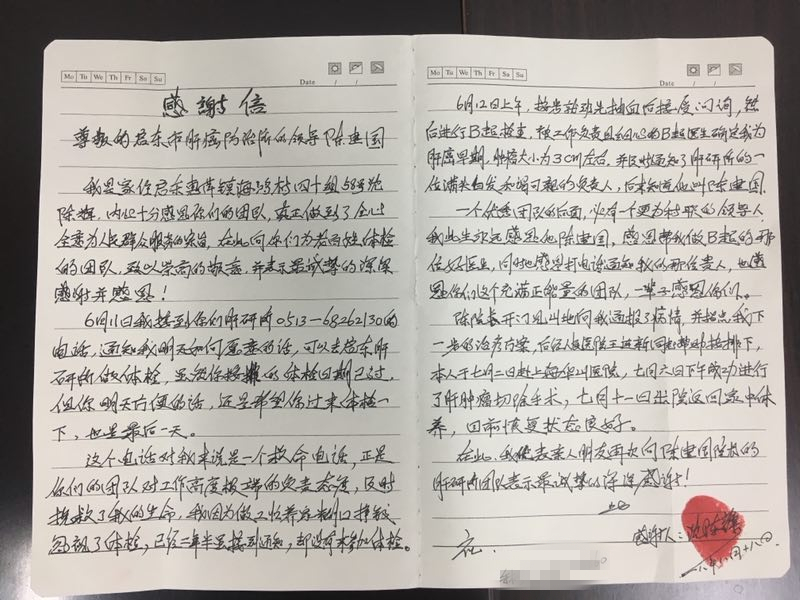 Mo Tu We Th Fr Sa Su
Date / /
感谢信
尊敬的启东市肝癌防治所的领导陈建国
我是家住启东惠萍镇海 村四十组58号沈
陈辉，内心十分感恩你们的团队，真正做到了全心
全意为人民群众服务的宗旨，在此向你们为老百姓体检
的团队，致以崇高的敬意，并表示最诚挚的深深
感谢并感恩！
6月11日我接到你们肝研所0513-68262130的
电话，通知我明天如何愿意的话，可以去启东肝
研所做体检，虽然你 的体检日期已过，
但你明天方便的话，还是希望你过来体检一
下，也是最后一天。
这个电话对我来说是一个救命电话，正是
你们的团队对工作高度极端的负责态度，及时
挽救了我的生命，我因为做工忙养家糊口
忽视了体检，已经二年半虽接到通知，却没有来参加体检。
Mo Tu We Th Fr Sa Su
Date / /
6月12日上午，按步就班先抽血后接受问询，然
后进行B超检查，被工作负责且细心的B超医生确定我为
肝癌早期，肿瘤大小为3cm左右，并及时通知了肝研所的一
位满头白发和蔼可亲的负责人，后来知道他叫陈建国。
一个优秀团队的后面，必有一个更为积极的领导人，
我此生永远感恩他陈建国，感恩帮我做B超的那
位好医生，同时也感恩打电话通知我的那位贵人，也感
恩你们这个充满正能量的团队，一辈子感恩你们。
陈院长开门见山地向我通报了病情，并指点我下
一步的治疗方案，后经人民医院王进新同志帮助安排下，
本人于七月二日赴上海中山医院，七月六日下午成功进行
了肝肿瘤切除手术，七月十一日出院返回家中休
养，目前恢复状态良好。
在此，我代表家人朋友再次向陈建国院长的
肝研所团队表示最诚挚的深深感谢！
感谢人：沈陈辉
一八年八月十八日